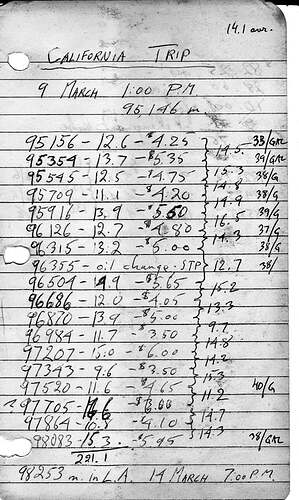 14.1 avr.
CALIFORNIA TRIP
9 MARCH 1:00 P.M.
95146 m
95156 - 12.6 - $4.25 33/GAL
14.5
95354 - 13.7 - $5.35 39/GAL
15.3
95545 - 12.5 - $4.75 38/G
14.8
95709 - 11.1 - $4.20 38/G
14.9
95916 - 13.9 - $5.50 39/G
16.5
96126 - 12.7 - $4.80 37/G
14.3
96315 - 13.2 - $5.00 38/G
96355 - oil change - STP 12.7 38/
96504 - 14.9 - $5.65
15.2
96686 - 12.0 - $4.05
13.3
96870 - 13.9 - $5.00
9.7
96984 - 11.7 - $3.50
14.8
97207 - 15.0 - $6.00
14.2
97343 - 9.6 - $3.50
15.3
97520 - 11.6 - $4.65 40/G
11.2
? 97705 - 16.6 - $6.00
14.7
97864 - 10.8 - 4.10
14.3
98083 - 15.3 - $5.95 38/GAL
221.1
98253 m. in L.A. 14 MARCH 7:00 P.M.